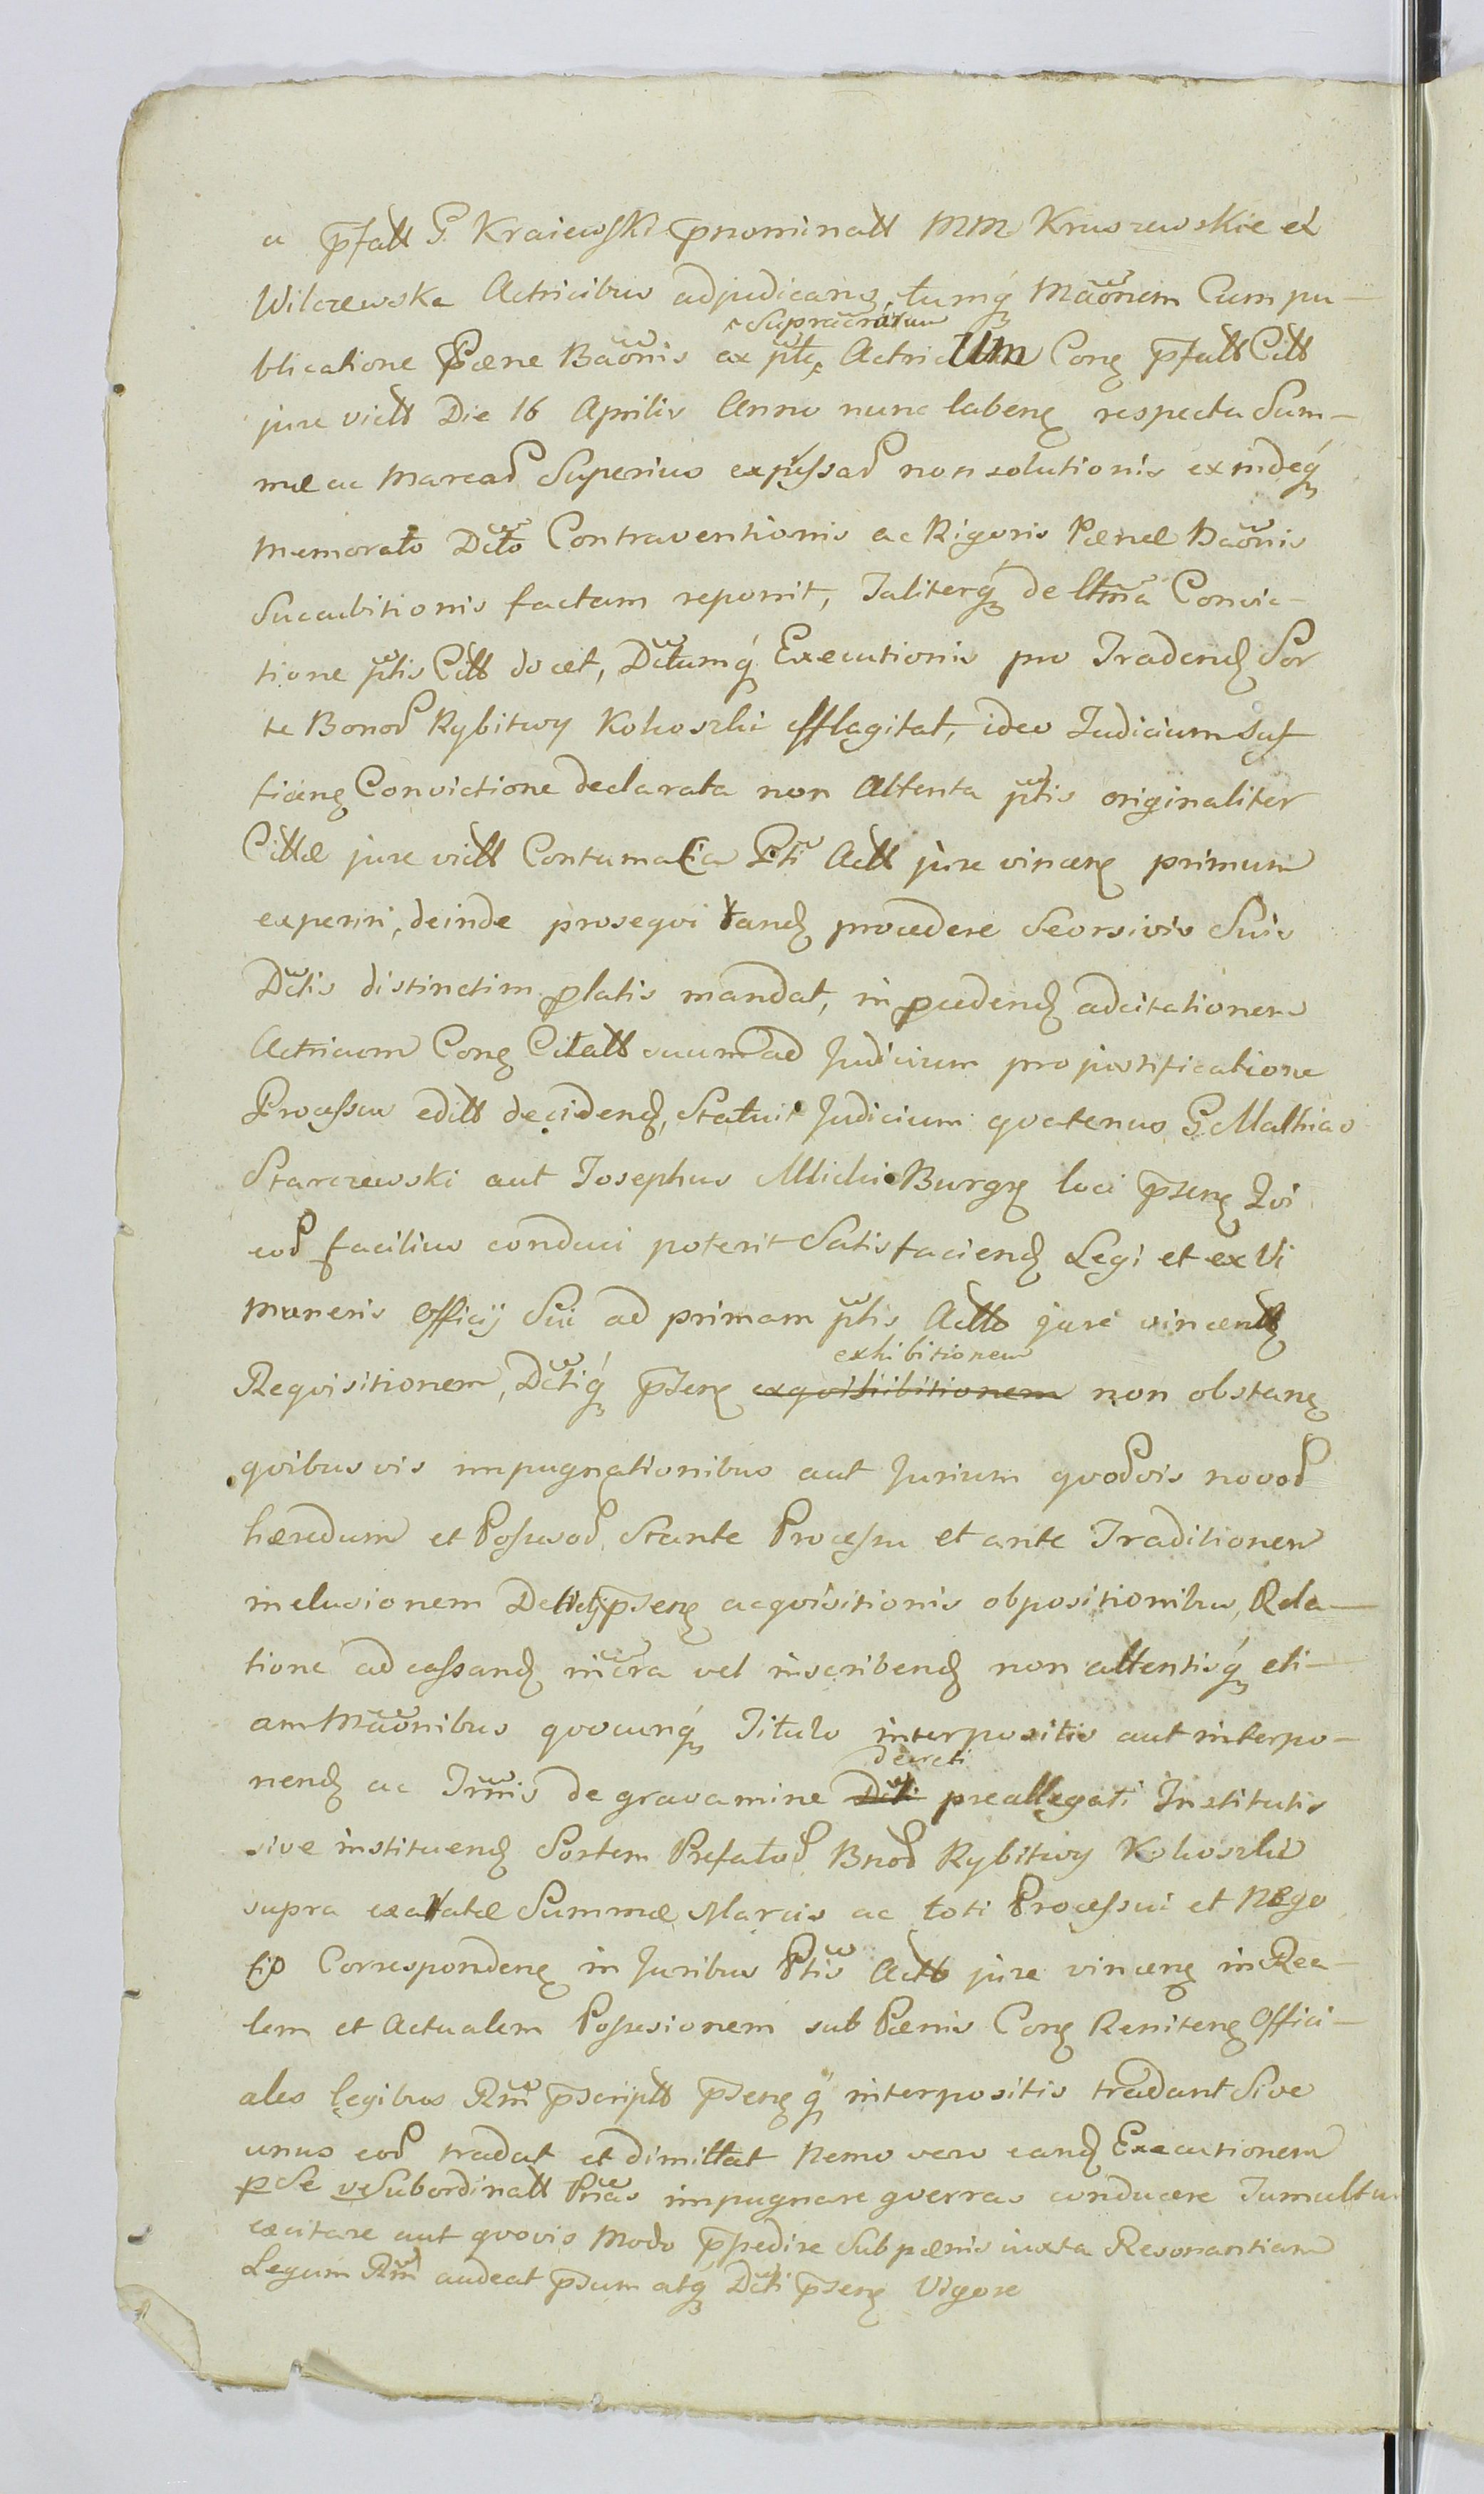 a p̄fatt G. Kraiewski p̄nominatt MM Kruszewskie et
Wilczewska Actricibus adjudicanꝫ, tumq́ꝫ Māōnem Cum pu-
Supracitatum
blicatione Pœnæ Bāōnis ex ptę Actricum Conꝫ p̄fatt Citt
jure victt Die 16 Aprilis Anno nunc labenꝫ respectu Sum-
mæ ac Marcaꝝ Superius expressaꝝ non solutionis exindeq́ꝫ
memorato Dcto Contraventionis ac Rigoris Pœnæ Bāōnis
Succubitionis factam reponit, Taliterq́ꝫ de ltm̄a Convic-
tione ptis Citt docet, Dctumq́ Executionis pro Tradenꝺ Sor
te Bonoꝝ Rybitwy Kokoszki efflagitat, ideo Judicium suf
ficienꝫ Convictione declarata non Attenta ptis originaliter
Cittæ jure victt Contumacia Pti Actt jure vincenꝫ primum
experiri, deinde prosequi tanꝺ procedere Seorsivis Suis
Dctis distinctim platis mandat, in pcedenꝺ adcitationem
Actricum Conꝫ Citatt suum ad Judicium pro justificatione
Processu editt decidenꝺ, Statuit Judicium qvatenus G. Mathias
Starczewski aut Josephus Milicki Burgrꝫ loci p̄senꝫ Qvi
eoꝝ facilius conduci poterit Satisfacienꝺ Legi et ex Vi
muneris Officij Sui ad primam ptis Actt jure vincentt
exhibitionem
Reqvisitionem, Dctiq́ꝫ p̄senꝫ exqvihibitionem non obstanꝫ
qvibusvis impugnationibus aut Jurium qvoꝝvis novoꝝ
hæredum et Possessoꝝ Stante Processu et ante Traditionem
inclusionem Dcti p̄senꝫ acqvisitionis obpositionibus, Rela-
tione ad cassanꝺ incra vel inscribenꝺ non attentisq́ꝫ eti-
am Māōnibus qvocunq́ꝫ Titulo interpositis aut interpo-
decreti
nenꝺ ac Trm̄is de gravamine Dcti preallegati Institutis
sive instituenꝺ Sortem Prefatoꝝ Bnoꝝ Rybitwy Kokoszki
supra exaratæ Summæ Marcis ac toti Processui et Nego
tio Correspondenꝫ in Juribus Ptis Actt jure vincenꝫ in Rea-
lem et Actualem Possesionem sub Pœnis Conꝫ Renitenꝫ Offici-
ales legibus Rm̄ p̄scriptt p̄senꝫ q́ꝫ interpositis tradant Sive
unus eoꝝ tradat et dimittat Nemo vero eanꝺ Executionem
p Se vè Subordinatt Pn̄as impugnare gverras conducere Tumultus
excitare aut qvovis Modo p̄pedire Sub pœnis iuxta Resonantiam
Legum Rm̄ audeat p̄sum atqꝫ Dcti p̄senꝫ Vigore